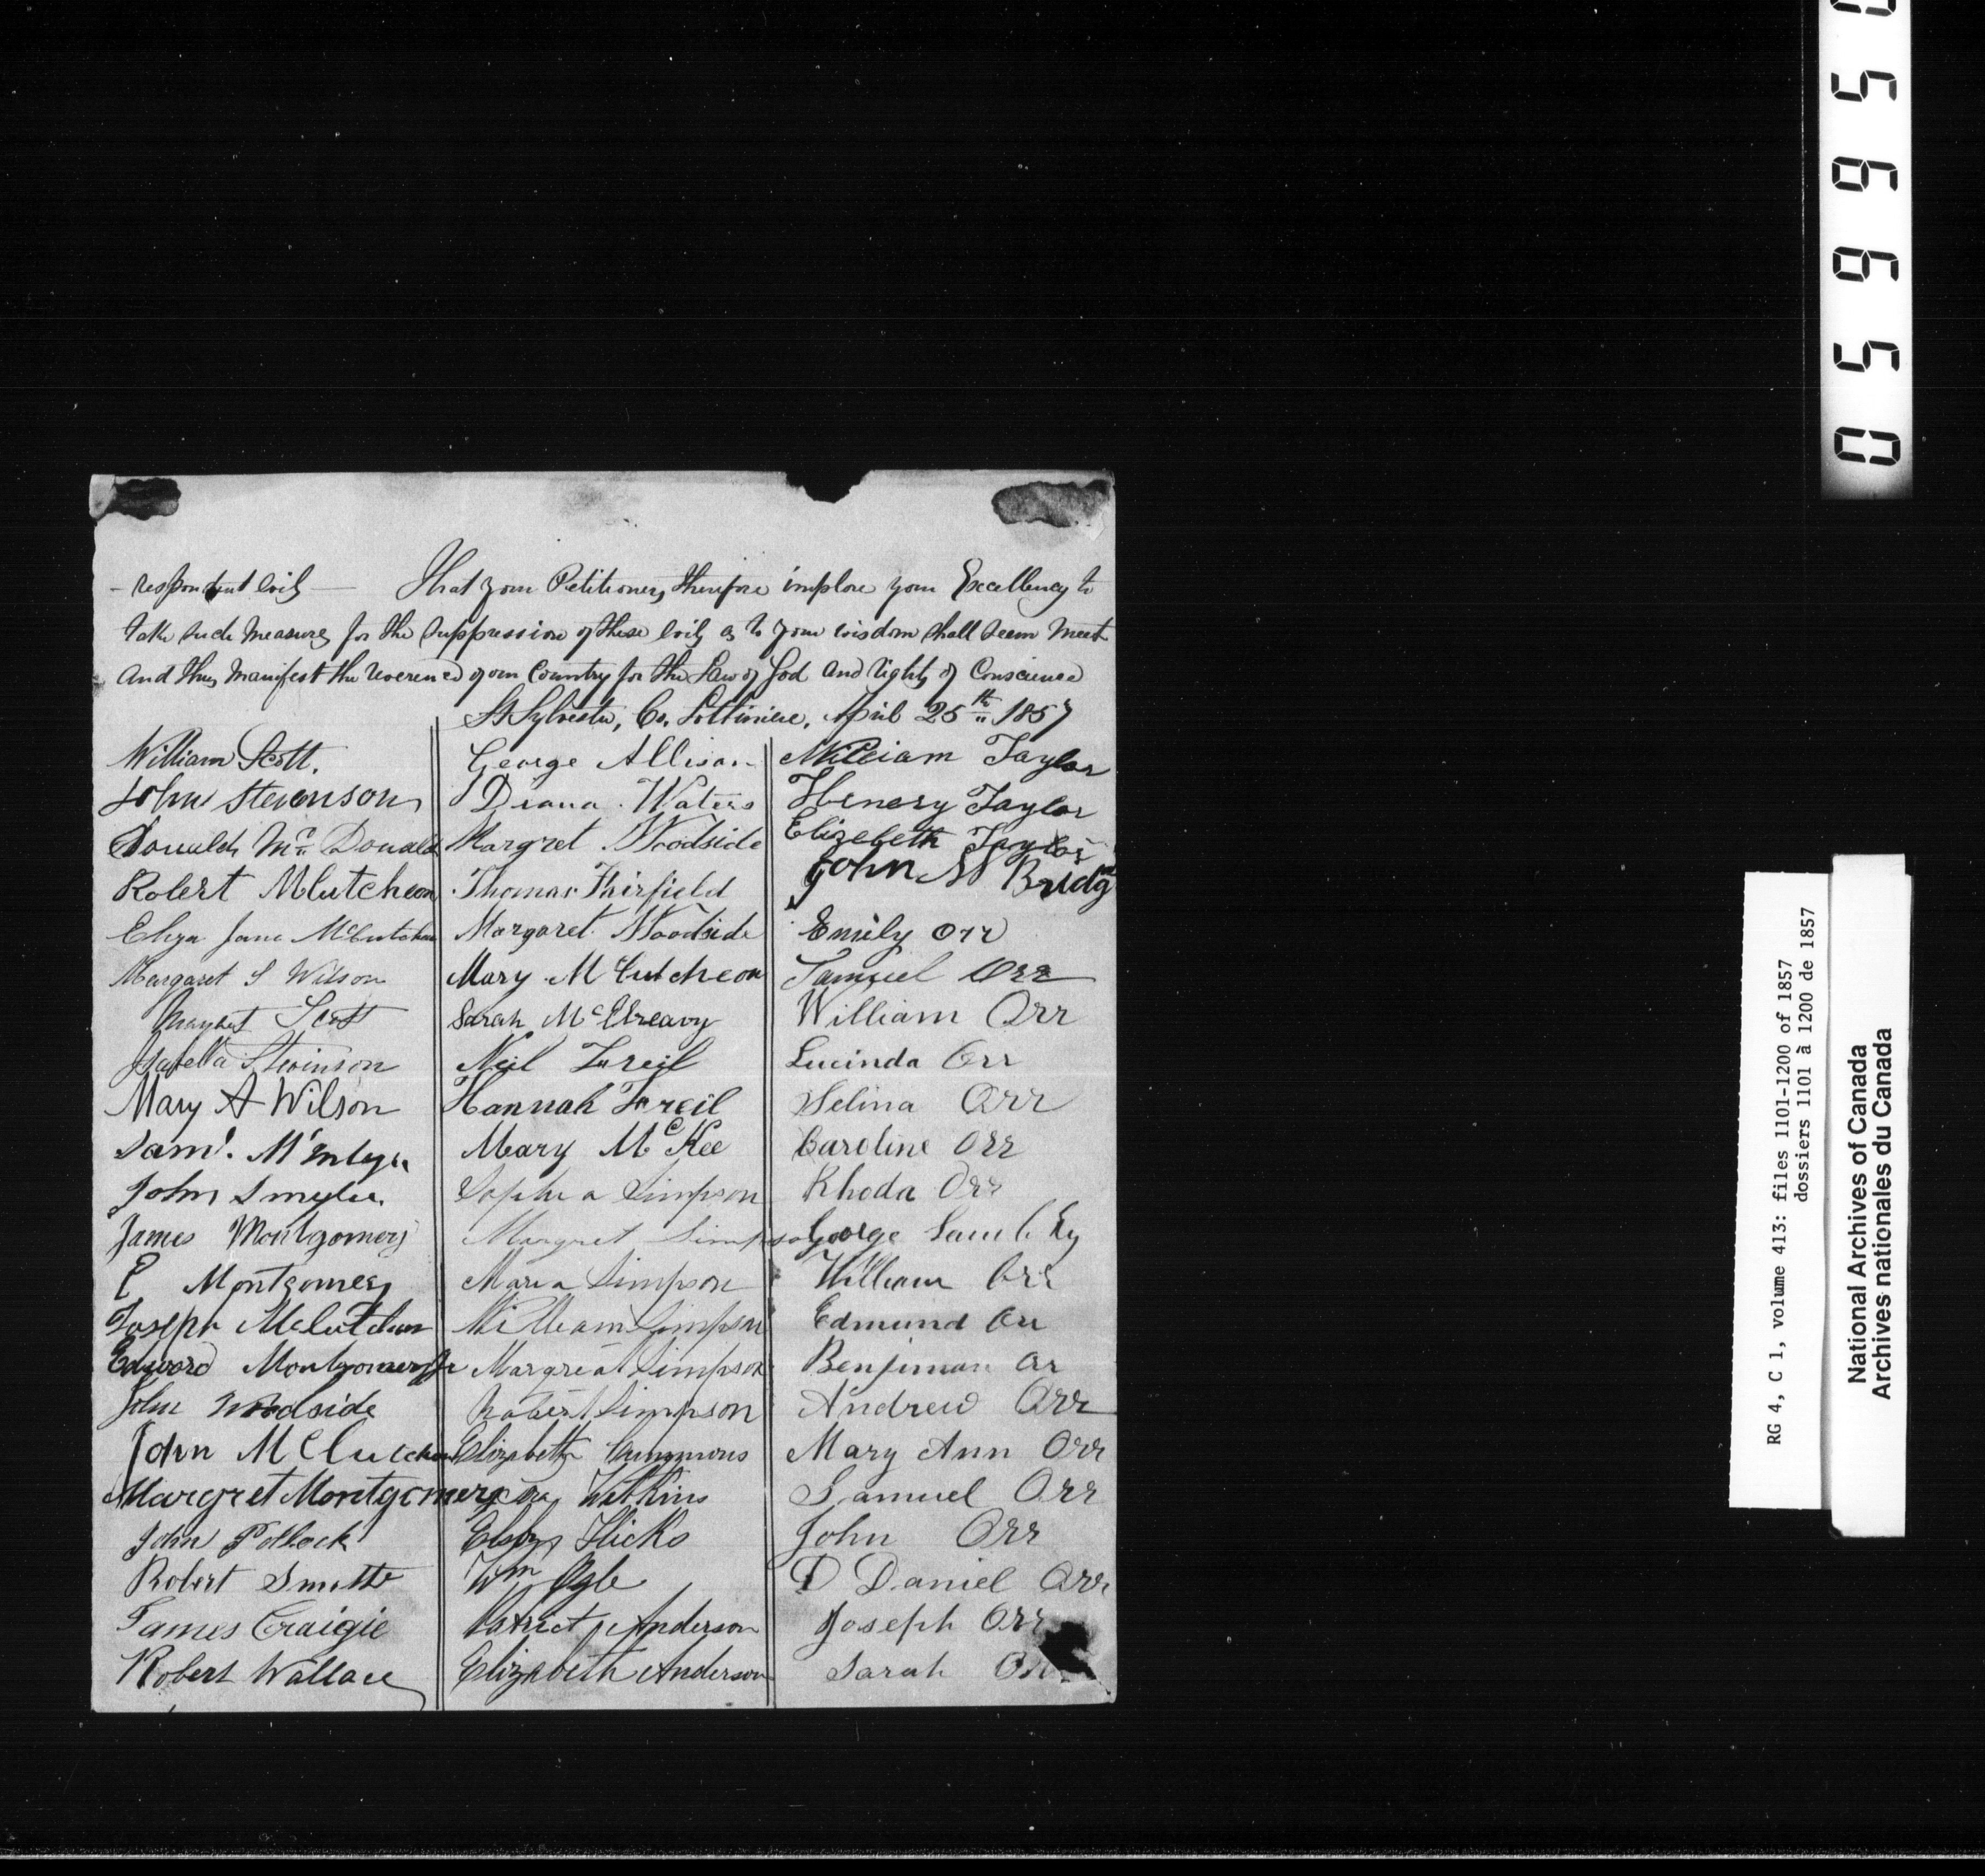 - respondent evils — That your Petitioners, therefore implore your Excellency to
take such measures for the suppression of these evils as to your wisdom shall seem meet
and thus manifest the reverence of our Country for the Law of God and rights of Conscience
St Sylvester, Co. Lotbiniere, April 25th 1857
William Scott.
John Stevenson
Donald Mc Donald
Robert McCutcheon
Eliza Jane McCutcheon
Margaret S Wilson
Margaret Scott
Isabella Stevinson
Mary A Wilson
Saml. McIntyre
John Smylie
James Montgomery
E Montgomery
Joseph McCutcheon
Edward Montgomery Jr
John Woodside
John McCutcheon
Margret Montgomery
John Pollock
Robert Smith
James Craigie
Robert Wallace
George Allison
Diana Waters
Margret Woodside
Thomas Fairfield
Margaret Woodside
Mary McCutcheon
Sarah McElreavy
Neil Freil
Hannah Freil
Mary McKee
Sophia Simpson
Margret Simpson
Maria Simpson
William Simpson
Margreat Simpson
Robert Simpson
Elizabeth Cummons
Watkins
Hicks
Wm Ogle
Patrict Anderson
Elizabeth Anderson
William Taylor
Henery Taylor
Elizebeth Taylor
John Bridg
Emily Orr
Samuel Orr
William Orr
Lucinda Orr
Selina Orr
Caroline Orr
Rhoda Orr
George
William Orr
Edmund Orr
Benjiman Orr
Andrew Orr
Mary Ann Orr
Samuel Orr
John Orr
D Daniel Orr
Joseph Orr
Sarah Orr
RG 4, C 1, volume 413: files 1101-1200 of 1857
dossiers 1101 à 1200 de 1857
National Archives of Canada
Archives nationales du Canada
05665